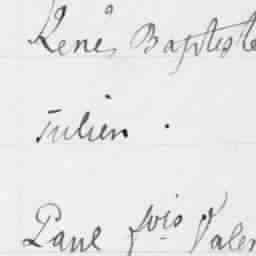 René, Baptiste
Julien .
Paul fois Valer